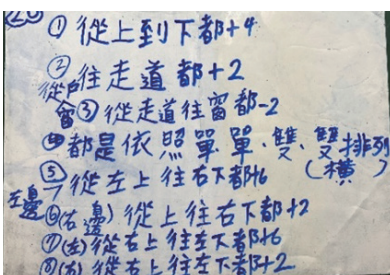 (20)
① 從上到下都+4
② 從戶往走道都+2
③ 從走道往窗都-2
④ 都是依照單單、雙、雙排列(橫)
⑤ 左邊從左上往右下都+6
⑥(右邊)從上往右下都+2
⑦(左)從右上往左下都+6
⑧(右)從右上往左下都+2